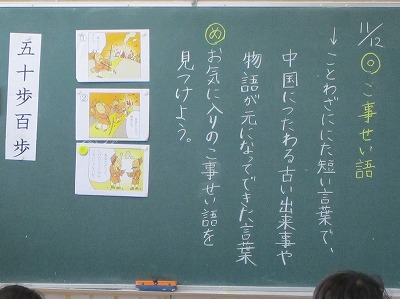 11/12
◎こ事せい語
→ことわざににた短い言葉で、
中国につたわる古い出来事や
物語が元になってできた言葉
めお気に入りのこ事せい語を
見つけよう。
①
②
五十歩百歩